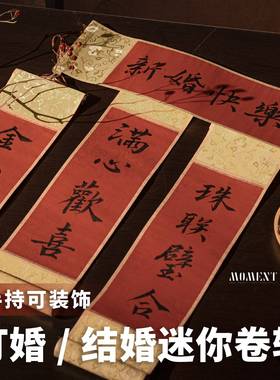 新婚快樂
金
滿心歡喜
珠联璧合
MOMENT
持可装饰
婚 / 结婚迷你卷